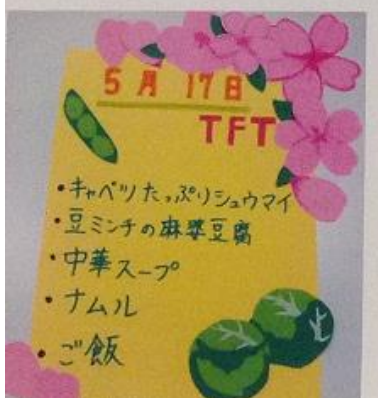 5月17日
TFT
・キャベツたっぷりシュウマイ
・豆ミンチの麻婆豆腐
・中華スープ
・ナムル
・ご飯